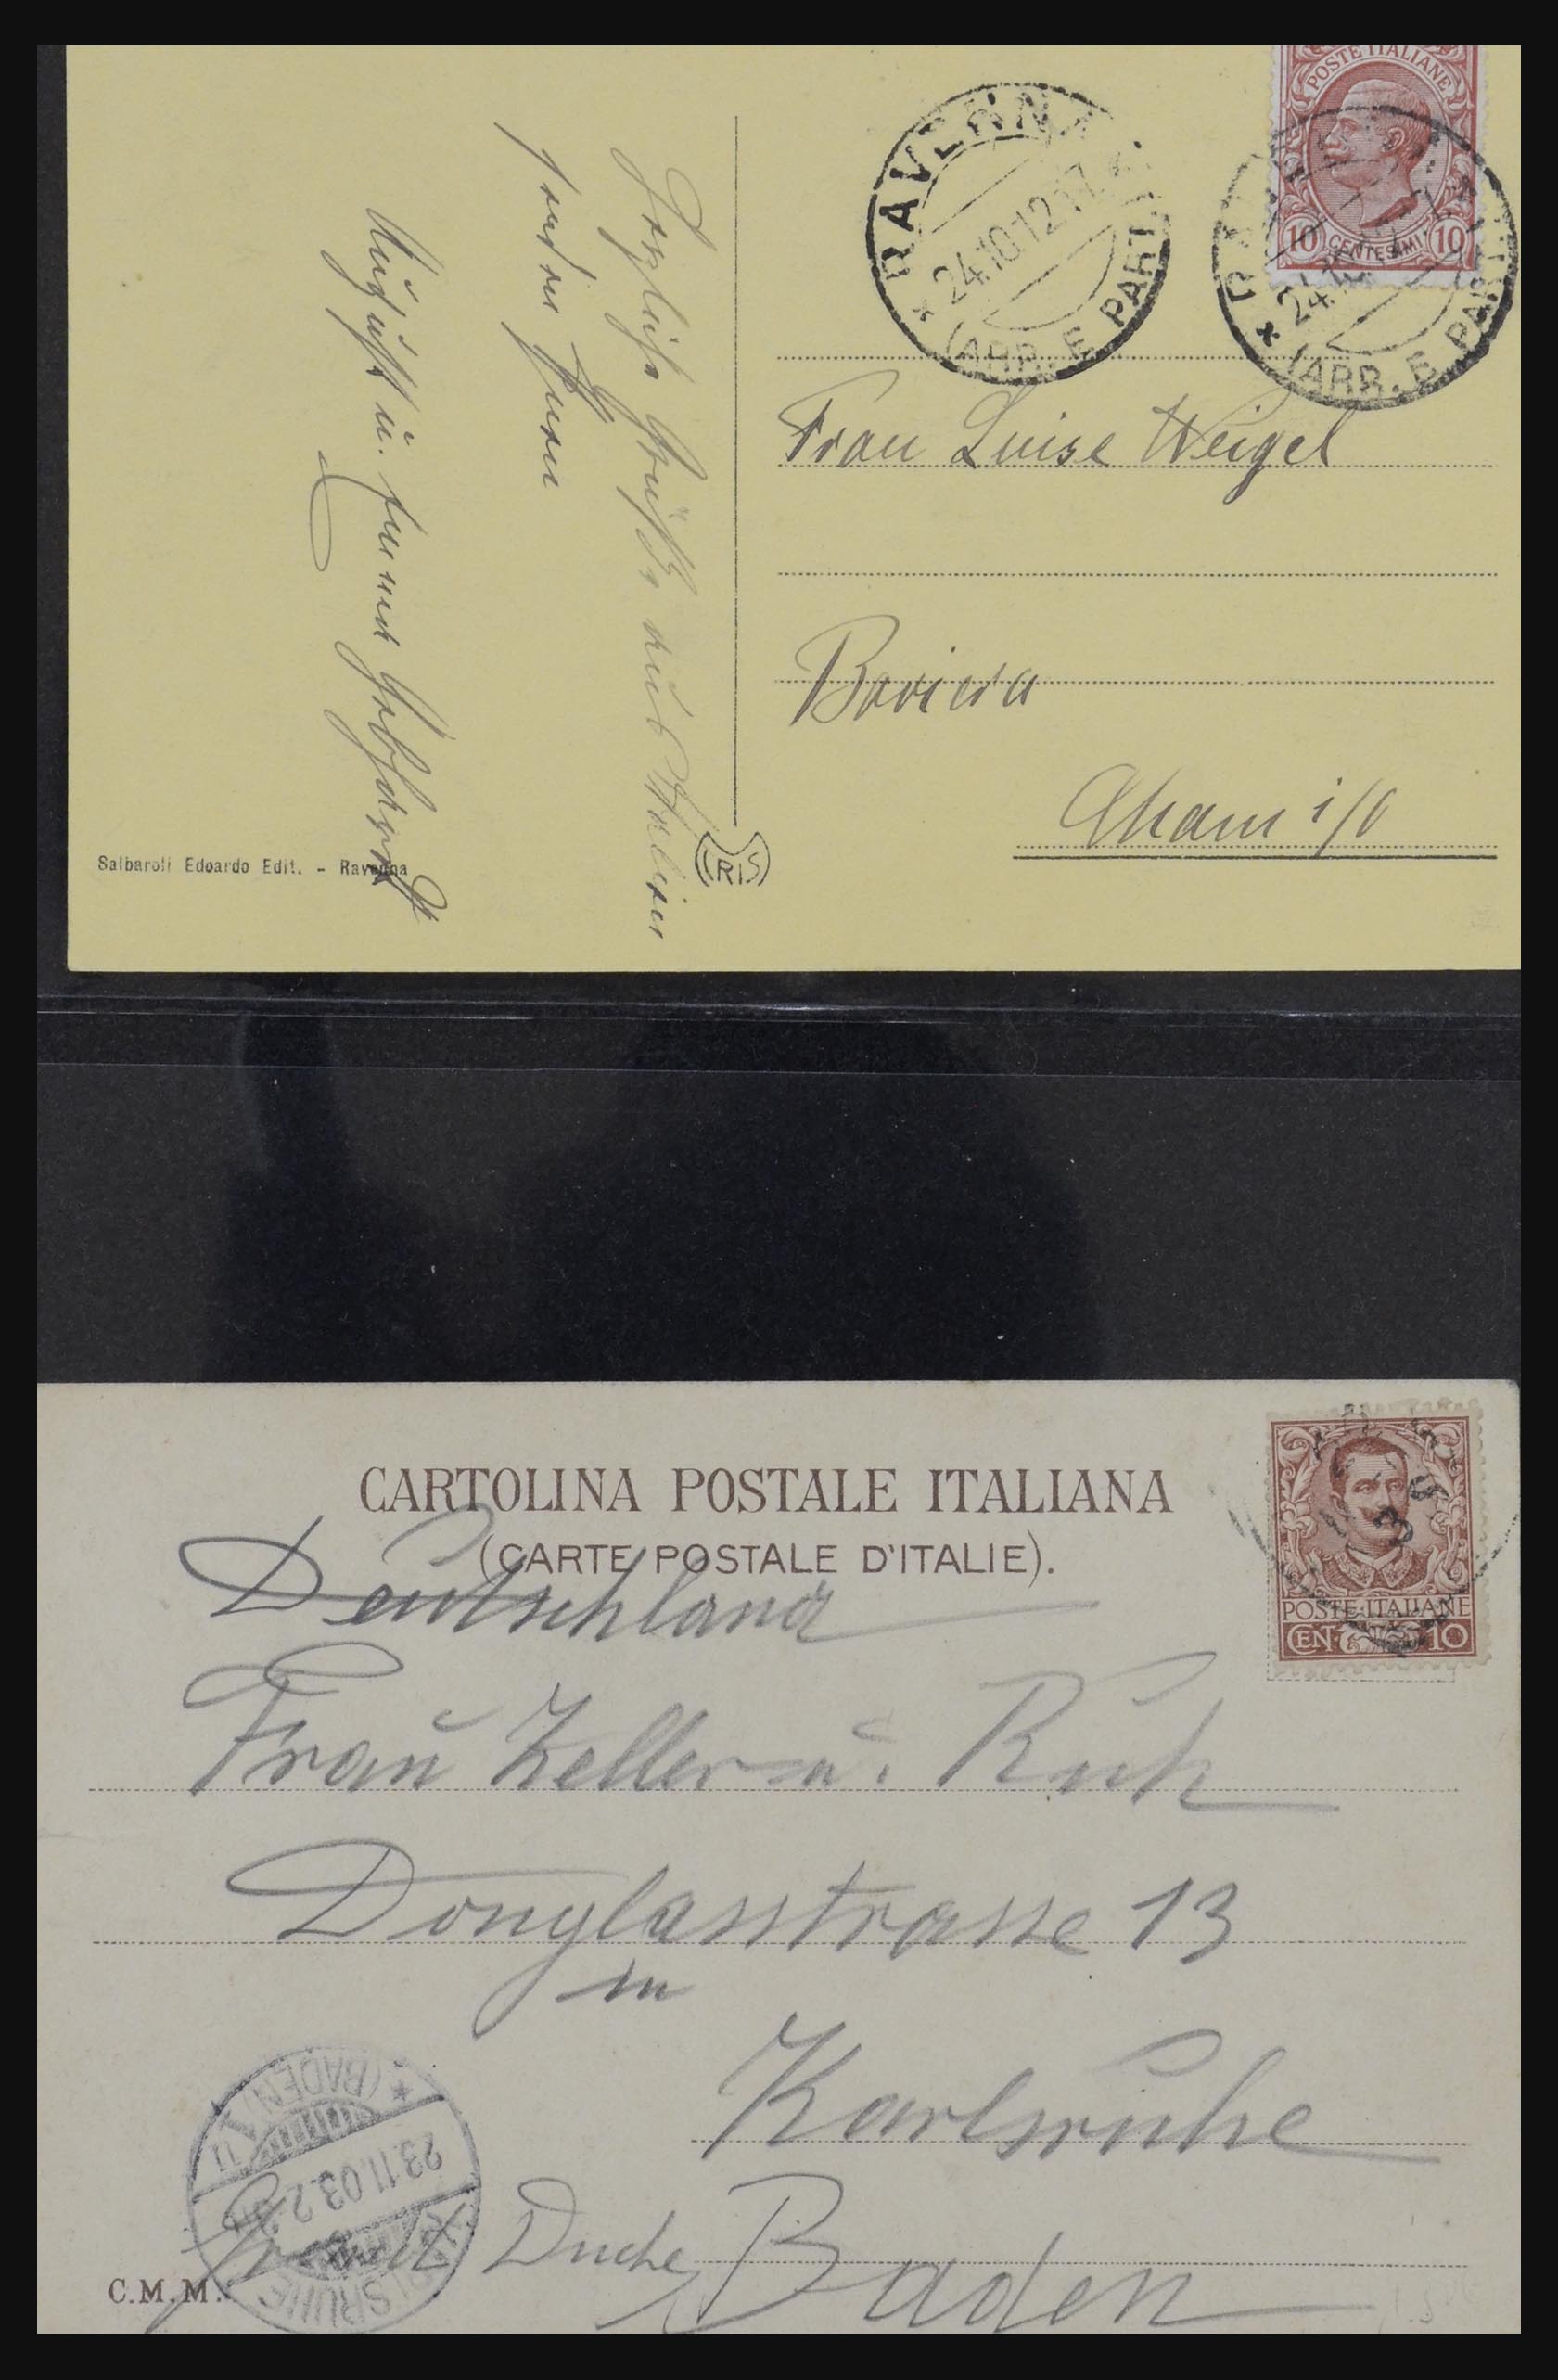 POSTE ITALIANE
10 CENTESIMI 10
RAVENNA
24.10.12.17
(ARR. E PART.
24.
(ARR. E PART.
Frau Luise Weigel
Baviera
Cham i/O
Herzliche Grüße aus Italien
sendet Ihnen
August u.
Salbaroli Edoardo Edit. - Ravenna
IRIS
CARTOLINA POSTALE ITALIANA
(CARTE POSTALE D'ITALIE).
POSTE ITALIANE
CEN 10
Deutschland
Frau Keller u. Ruh
Douglasstrasse 13
in
Karlsruhe
Grand Duche Baden
KARLSRUHE
23.11.03.2
(BADEN)
C.M.M.